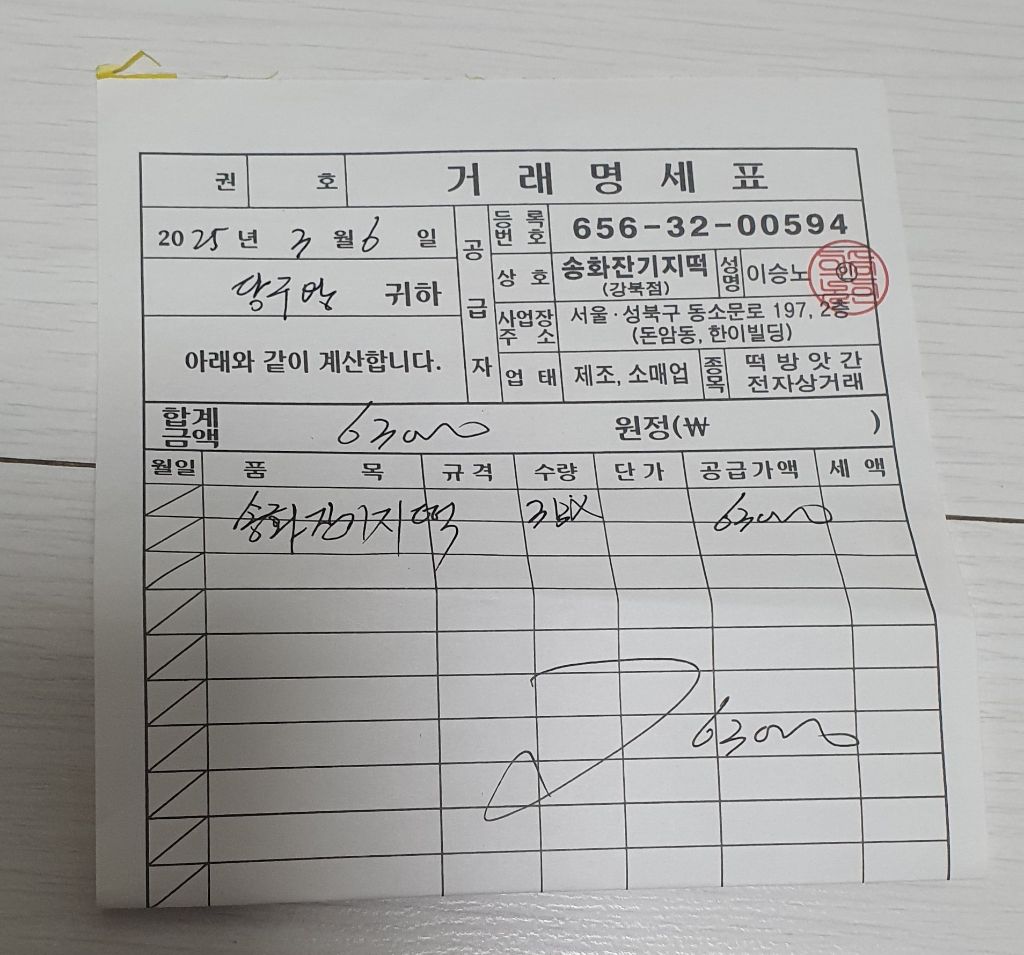 권 호 거래명세표
2025년 3월 6일
귀하
아래와 같이 계산합니다.
공급자
등록번호 656-32-00594
상호 송화잔기지떡 (강북점) 성명 이승노 인
사업장주소 서울·성북구 동소문로 197, 2층
(돈암동, 한이빌딩)
업태 제조, 소매업 종목 떡방앗간
전자상거래
합계금액 63000 원정(₩ )
월일 품목 규격 수량 단가 공급가액 세액
송화잔기지떡 3 63000
63000